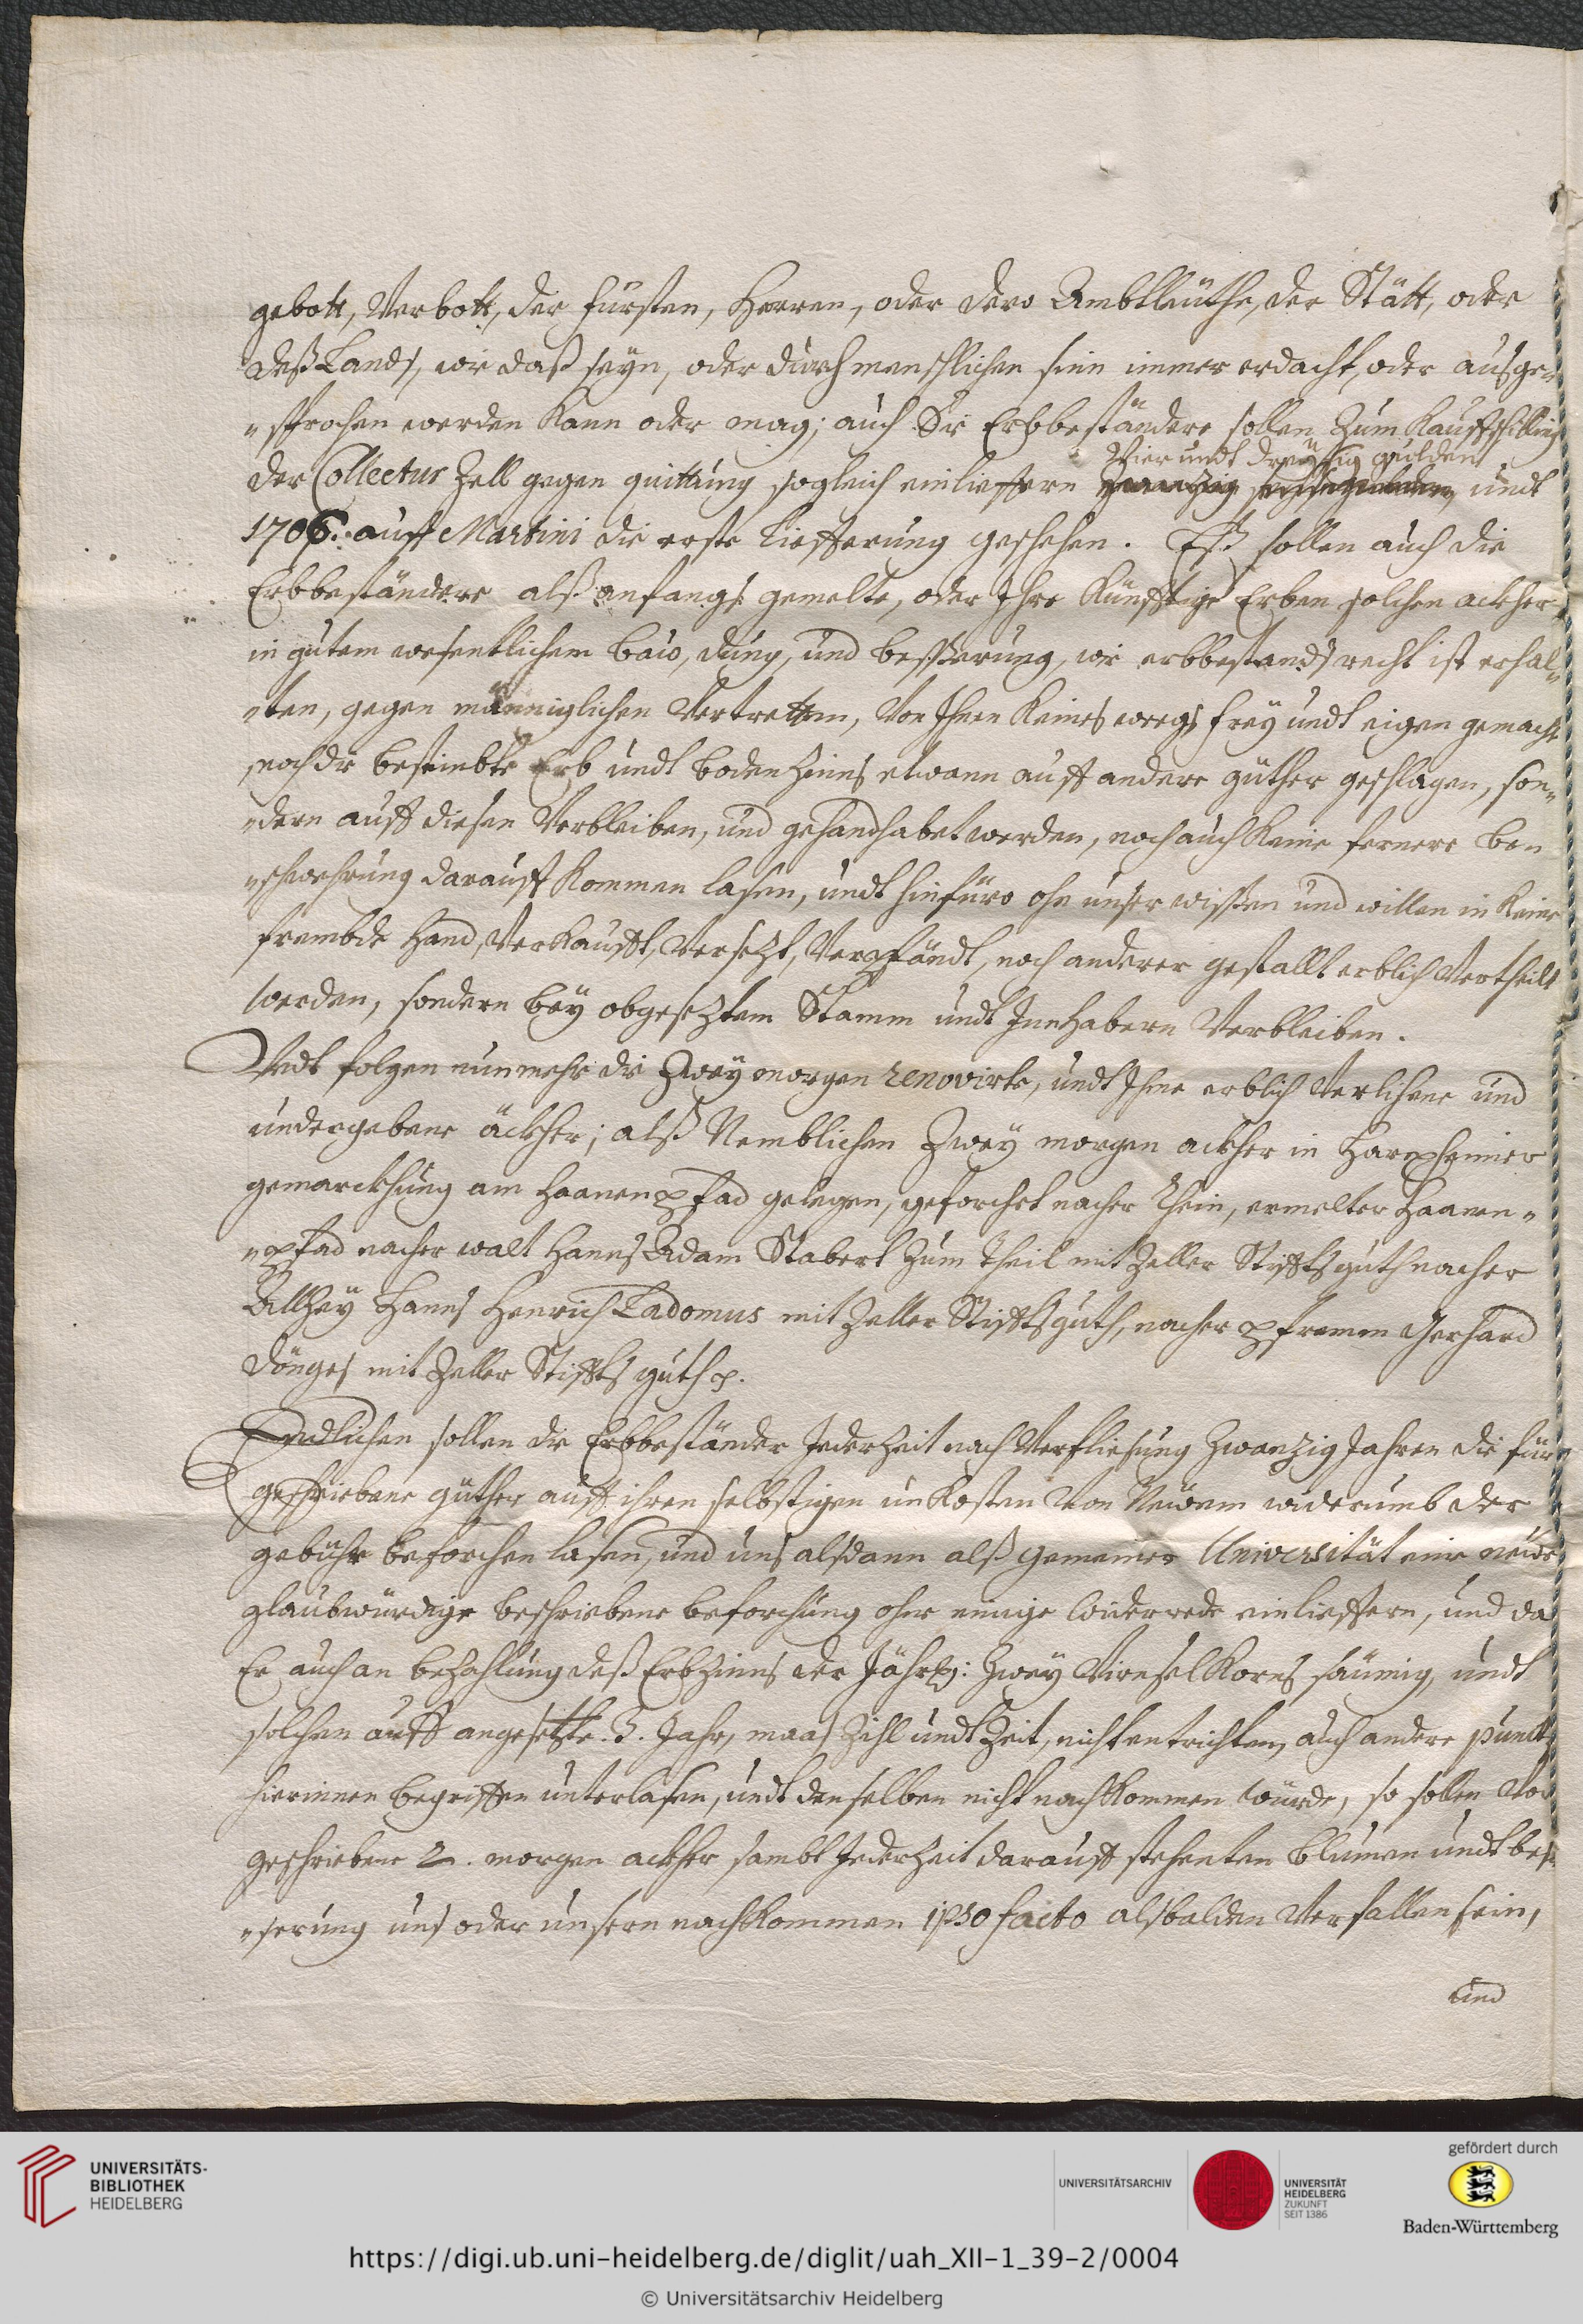 gebott, Verbott, der Fürsten, Herren, oder dero Ambtleüthe, der Stätt, oder
deß Lands, wie daß seyn, oder durch menschlichen sinn immer erdacht, oder ausge„
„sprochen werden kann oder mag; auch die Erbbeständere sollen zum Kauffschilling
Vier undt dreyßig gulden
der Collectur Zell gegen quittung sogleich einlieffern undt
1706. auff Martini die erste lieferung geschehen. Eß sollen auch die
Erbbeständere alß anfangs gemelte, oder Ihre Künfftige Erben solchen ackher
in gutem wesentlichem bäw, dung, und besserung, wie erbbestands recht ist erhal„
„ten, gegen männiglichen Vertretten, Von Ihnen keines weegs frey undt eigen gemacht
noch die bestimbte Erb undt boden Zinns etwann auff andere güther geschlagen, son„
„dern auff diesen Verbleiben, und gehandhabet werden, noch auch keine fernere be„
„schwehrung darauff kommen lasen, undt hinfüro ohn unser wißen und willen in keine
frembde hand, Verkaufft, Versezt, Verpfändt, noch anderer gestallt erblich Vertheilt
werden, sondern bey obgeseztem Stamm undt Innhabern Verbleiben.
Undt folgen nunmehr die Zwey morgen renovirte, undt Ihme erblich Verlihene und
undergebene äckher; alß Nemblichen Zwey morgen ackher in Harxheimer
gemarckhung am Haanenpfad gelegen, geforchet nacher Rhein, ermelter Haanen„
„pfad nacher walt Hanns Adam Stabert zum theil mit Zeller Stiffts guth nacher
Altzey Hanns Henrich Ladomus mit Zeller Stiffts guth, nacher pfrimm Gerhard
Dönges mit Zeller Stiffts guth p.
Endlichen sollen die Erbbeständer Jederzeit nach Verfliesung Zwanzig Jahren die für„
geschriebene güther auff ihren selbstigen unkosten Von Neüem widerumb der
gebühr beforchen lasen, und uns alsdann alß gemeiner Universität eine neüe
glaubwürdige beschriebene beforchung ohne einige widerrede einlieffern, und da
Er auch an bezahlung deß Erbzinns der Jährl: Zwey Viernsel Korns säumig, undt
solchen auff angesetzte. 3. Jahr, maas Zihl undt Zeit, nicht entrichten, auch andere punct
hierinnen begriffen unterlasen, undt denselben nicht nachkommen würde, so sollen Vor
geschriebene 2. morgen ackher sambt Jederzeit darauff stehenten blumen undt bes„
„serung uns oder unseren nachkommen ipso facto alsbalden Verfallen sein,
und
UNIVERSITÄTS-
BIBLIOTHEK
HEIDELBERG
UNIVERSITÄTSARCHIV
UNIVERSITÄT
HEIDELBERG
ZUKUNFT
SEIT 1386
gefördert durch
Baden-Württemberg
https://digi.ub.uni-heidelberg.de/diglit/uah_XII-1_39-2/0004
© Universitätsarchiv Heidelberg